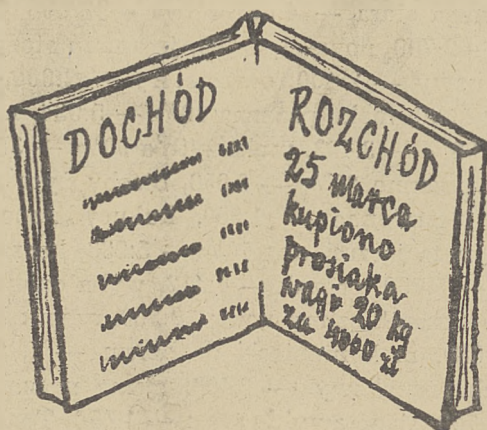 DOCHÓD
ROZCHÓD
25 marca
kupiono
prosiaka
wagi 20 kg
za 4000 zł